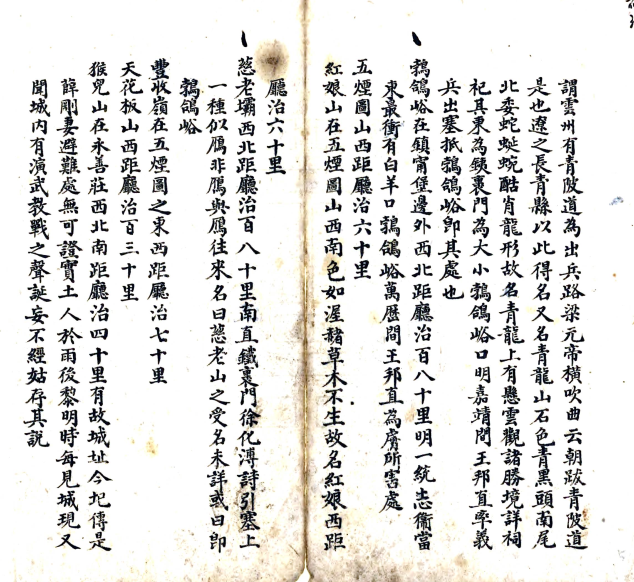 謂雲州有青陂道為出兵路梁元帝橫吹曲云朝跋青陂道
是也遼之長青縣以此得名又名青龍山石色青黑頭南尾
北委蛇蜒蜿酷肖龍形故名青龍上有懸雲觀諸勝境詳祠
祀其東為鐵裹門為大小鵓鴿峪口明嘉靖間王邦直率義
兵出塞抵鵓鴿峪卽其處也
鵓鴿峪在鎮甯堡邊外西北距廳治百八十里明一統志衞當
東最衝有白羊口鵓鴿峪萬歷間王邦直為虜所害處
五煙圖山西距廳治六十里
紅娘山在五煙圖山西南色如渥赭草木不生故名紅娘西距
廳治六十里
慈老壩西北距廳治百八十里南直鐵裹門徐化溥詩引塞上
一種似鴈非鴈與鴈往來名曰慈老山之受名未詳或曰卽
鵓鴿峪
豐收嶺在五煙圖之東西距廳治七十里
天花板山西距廳治百三十里
猴兒山在永善莊西北南距廳治四十里有故城址今圯傳是
薛剛妻避難處無可證實土人於雨後黎明時每見城現又
聞城內有演武教戰之聲誕妄不經姑存其說